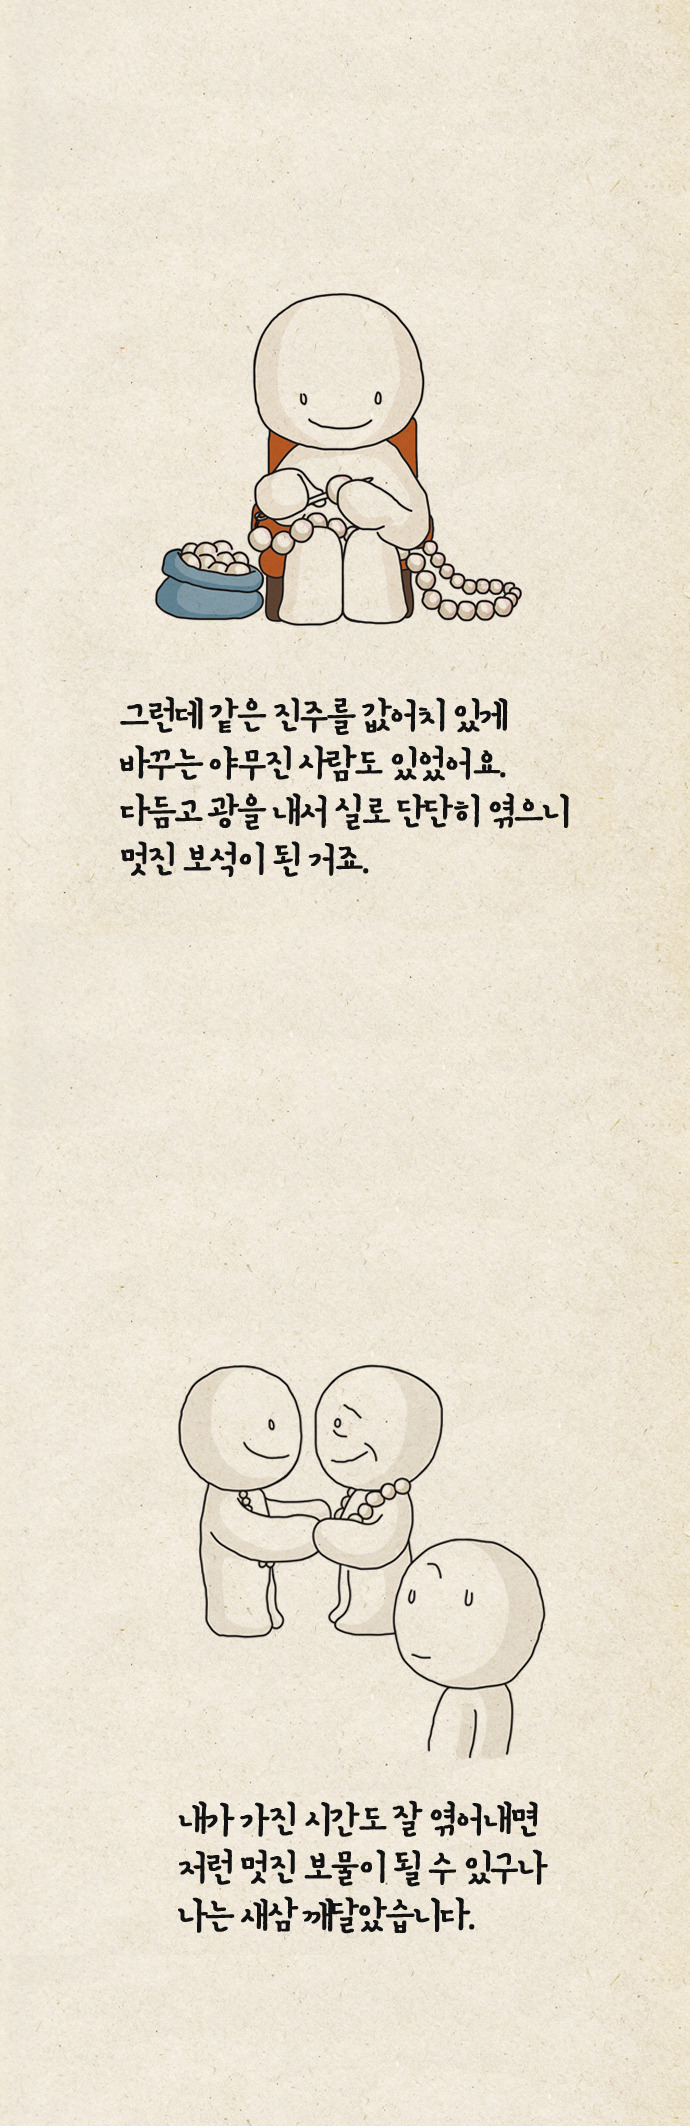 그런데 같은 진주를 값어치 있게
바꾸는 야무진 사람도 있었어요.
다듬고 광을 내서 실로 단단히 엮으니
멋진 보석이 된 거죠.
내가 가진 시간도 잘 엮어내면
저런 멋진 보물이 될 수 있구나
나는 새삼 깨달았습니다.